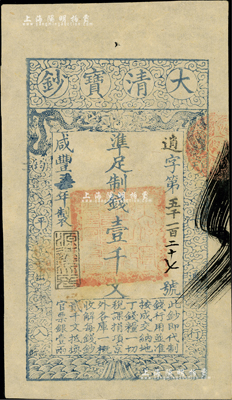 上海阳明拍卖
大清寶鈔
遒字第五千一百二十
號
準足制錢壹千文
咸豐
年製
此鈔即代制
錢行用並准
按成交納地
丁錢糧一切
稅課捐項京
外各庫一概
收解每錢鈔
貳千文抵換
官票銀壹兩